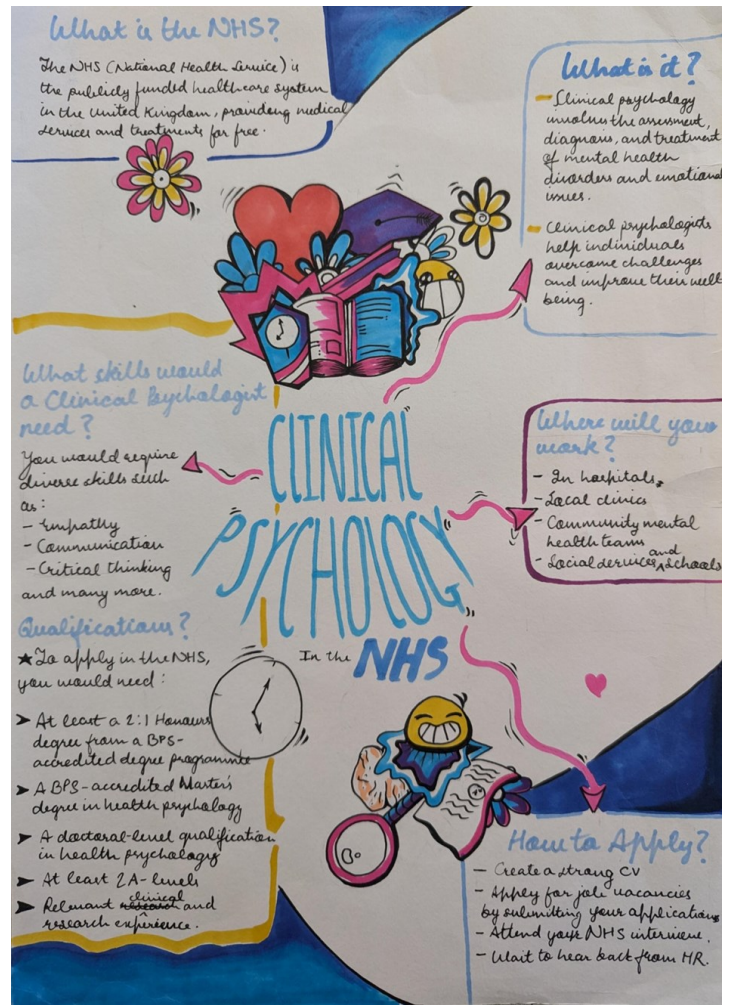 What is the NHS?
The NHS (National Health Service) is
the publicly funded healthcare system
in the United Kingdom, providing medical
services and treatments for free.
What is it?
- Clinical psychology
involves the assessment,
diagnosis, and treatment
of mental health
disorders and emotional
issues.
- Clinical psychologists
help individuals
overcome challenges
and improve their well
being.
What skills would
a Clinical Psychologist
need?
You would require
diverse skills such
as:
- Empathy
- Communication
- Critical thinking
and many more.
CLINICAL
PSYCHOLOGY
In the NHS
Where will you
work?
- In hospitals,
- Local clinics
- Community mental
health teams
- Social services and schools
Qualifications?
★ To apply in the NHS,
you would need:
➤ At least a 2:1 Honours
degree from a BPS-
accredited degree programme
➤ A BPS-accredited Master's
degree in health psychology
➤ A doctoral-level qualification
in health psychology
➤ At least 2 A-levels
➤ Relevant clinical and
research experience.
How to Apply?
- Create a strong CV
- Apply for job vacancies
by submitting your applications
- Attend your NHS interview.
- Wait to hear back from HR.